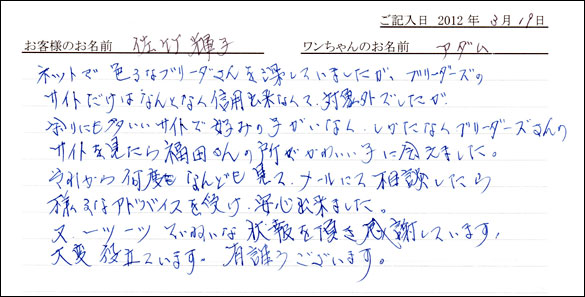 ご記入日 2012 年 3月 19日
お客様のお名前 佐竹 輝子 ワンちゃんのお名前 アダム
ネットで色々なブリーダーさんを探していましたが、ブリーダーズの
サイトだけはなんとなく信用出来なくて、対象外でしたが
余りにも多いいサイトで好みの子がいなく、しかたなくブリーダーズさんの
サイトを見たら福田さんの所でかわいい子に会えました。
それから何度もなんども見て、メールにて相談したら
様々なアドバイスを受け、安心出来ました。
又、一ツ一ツていねいな状報を頂き感謝しています。
大変役立ています。有難うございます。